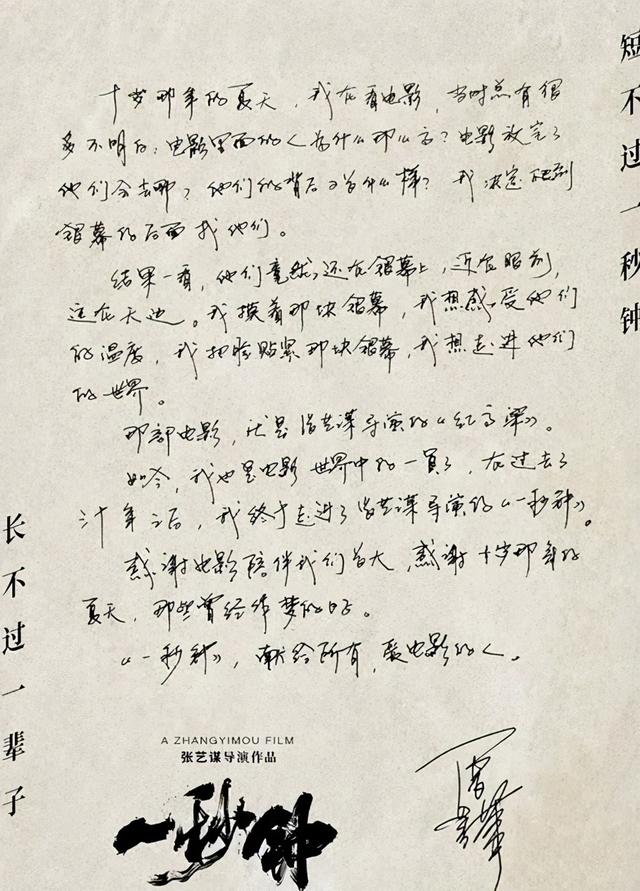 短不过一秒钟
十岁那年的夏天，我在看电影，当时总有很
多不明白：电影里面的人为什么那么高？电影放完了
他们会去哪？他们的背后又什么样？我决定跑到
银幕的后面找他们。
结果一看，他们竟然还在银幕上，近在眼前，
远在天边。我摸着那块银幕，我想感受他们
的温度，我把脸贴紧那块银幕，我想走进他们
的世界。
那部电影，就是张艺谋导演的《红高粱》。
如今，我也是电影世界中的一員了，在过去了
卅年之后，我终于走进了张艺谋导演的《一秒钟》。
感谢电影陪伴我们长大，感谢十岁那年的
夏天，那些曾经作梦的日子。
《一秒钟》，献给所有，爱电影的人。
长不过一辈子
A ZHANGYIMOU FILM
张艺谋导演作品
一秒钟